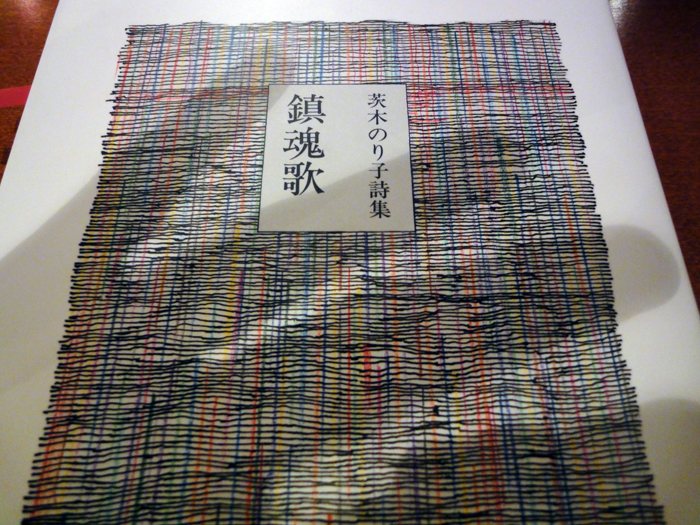 茨木のり子詩集
鎮魂歌